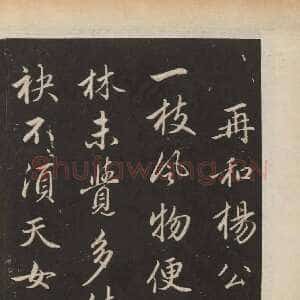 再和楊公
一枝風物便
林未覺多
袂不須天女
shufawang.CN